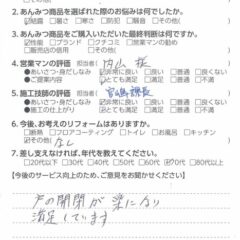 □その他(
2.あんみつ商品を選ばれた際のお悩みは何でしたか。
☑結露 □暑さ □寒さ □防犯 □騒音 □その他(
3.あんみつ商品をご購入いただいた最終判断は何ですか。
☑性能 □ブランド □クチコミ □営業マンの勧め
□販売店の信用 □その他(
4.営業マンの評価 担当者( 内山 様
●あいさつ・身だしなみ ☑非常に良い □良い □普通 □良くない
●ご提案内容 ☑とても満足 □満足 □普通 □不満
5.施工技師の評価 担当者( 宮嶋課長
●あいさつ・身だしなみ ☑非常に良い □良い □普通 □良くない
●施工の仕上がり ☑とても満足 □満足 □普通 □不満
6.今後、お考えのリフォームはありますか。
□断熱 □フロアコーティング □トイレ □お風呂 □キッチン
☑その他( なし
7.差し支えなければ、年代を教えてください。
□20代以下 □30代 □40代 □50代 □60代 ☑70代 □80代以上
【今後のサービス向上のため、ご意見をお聞かせください】
戸の開閉が楽になり
満足しています